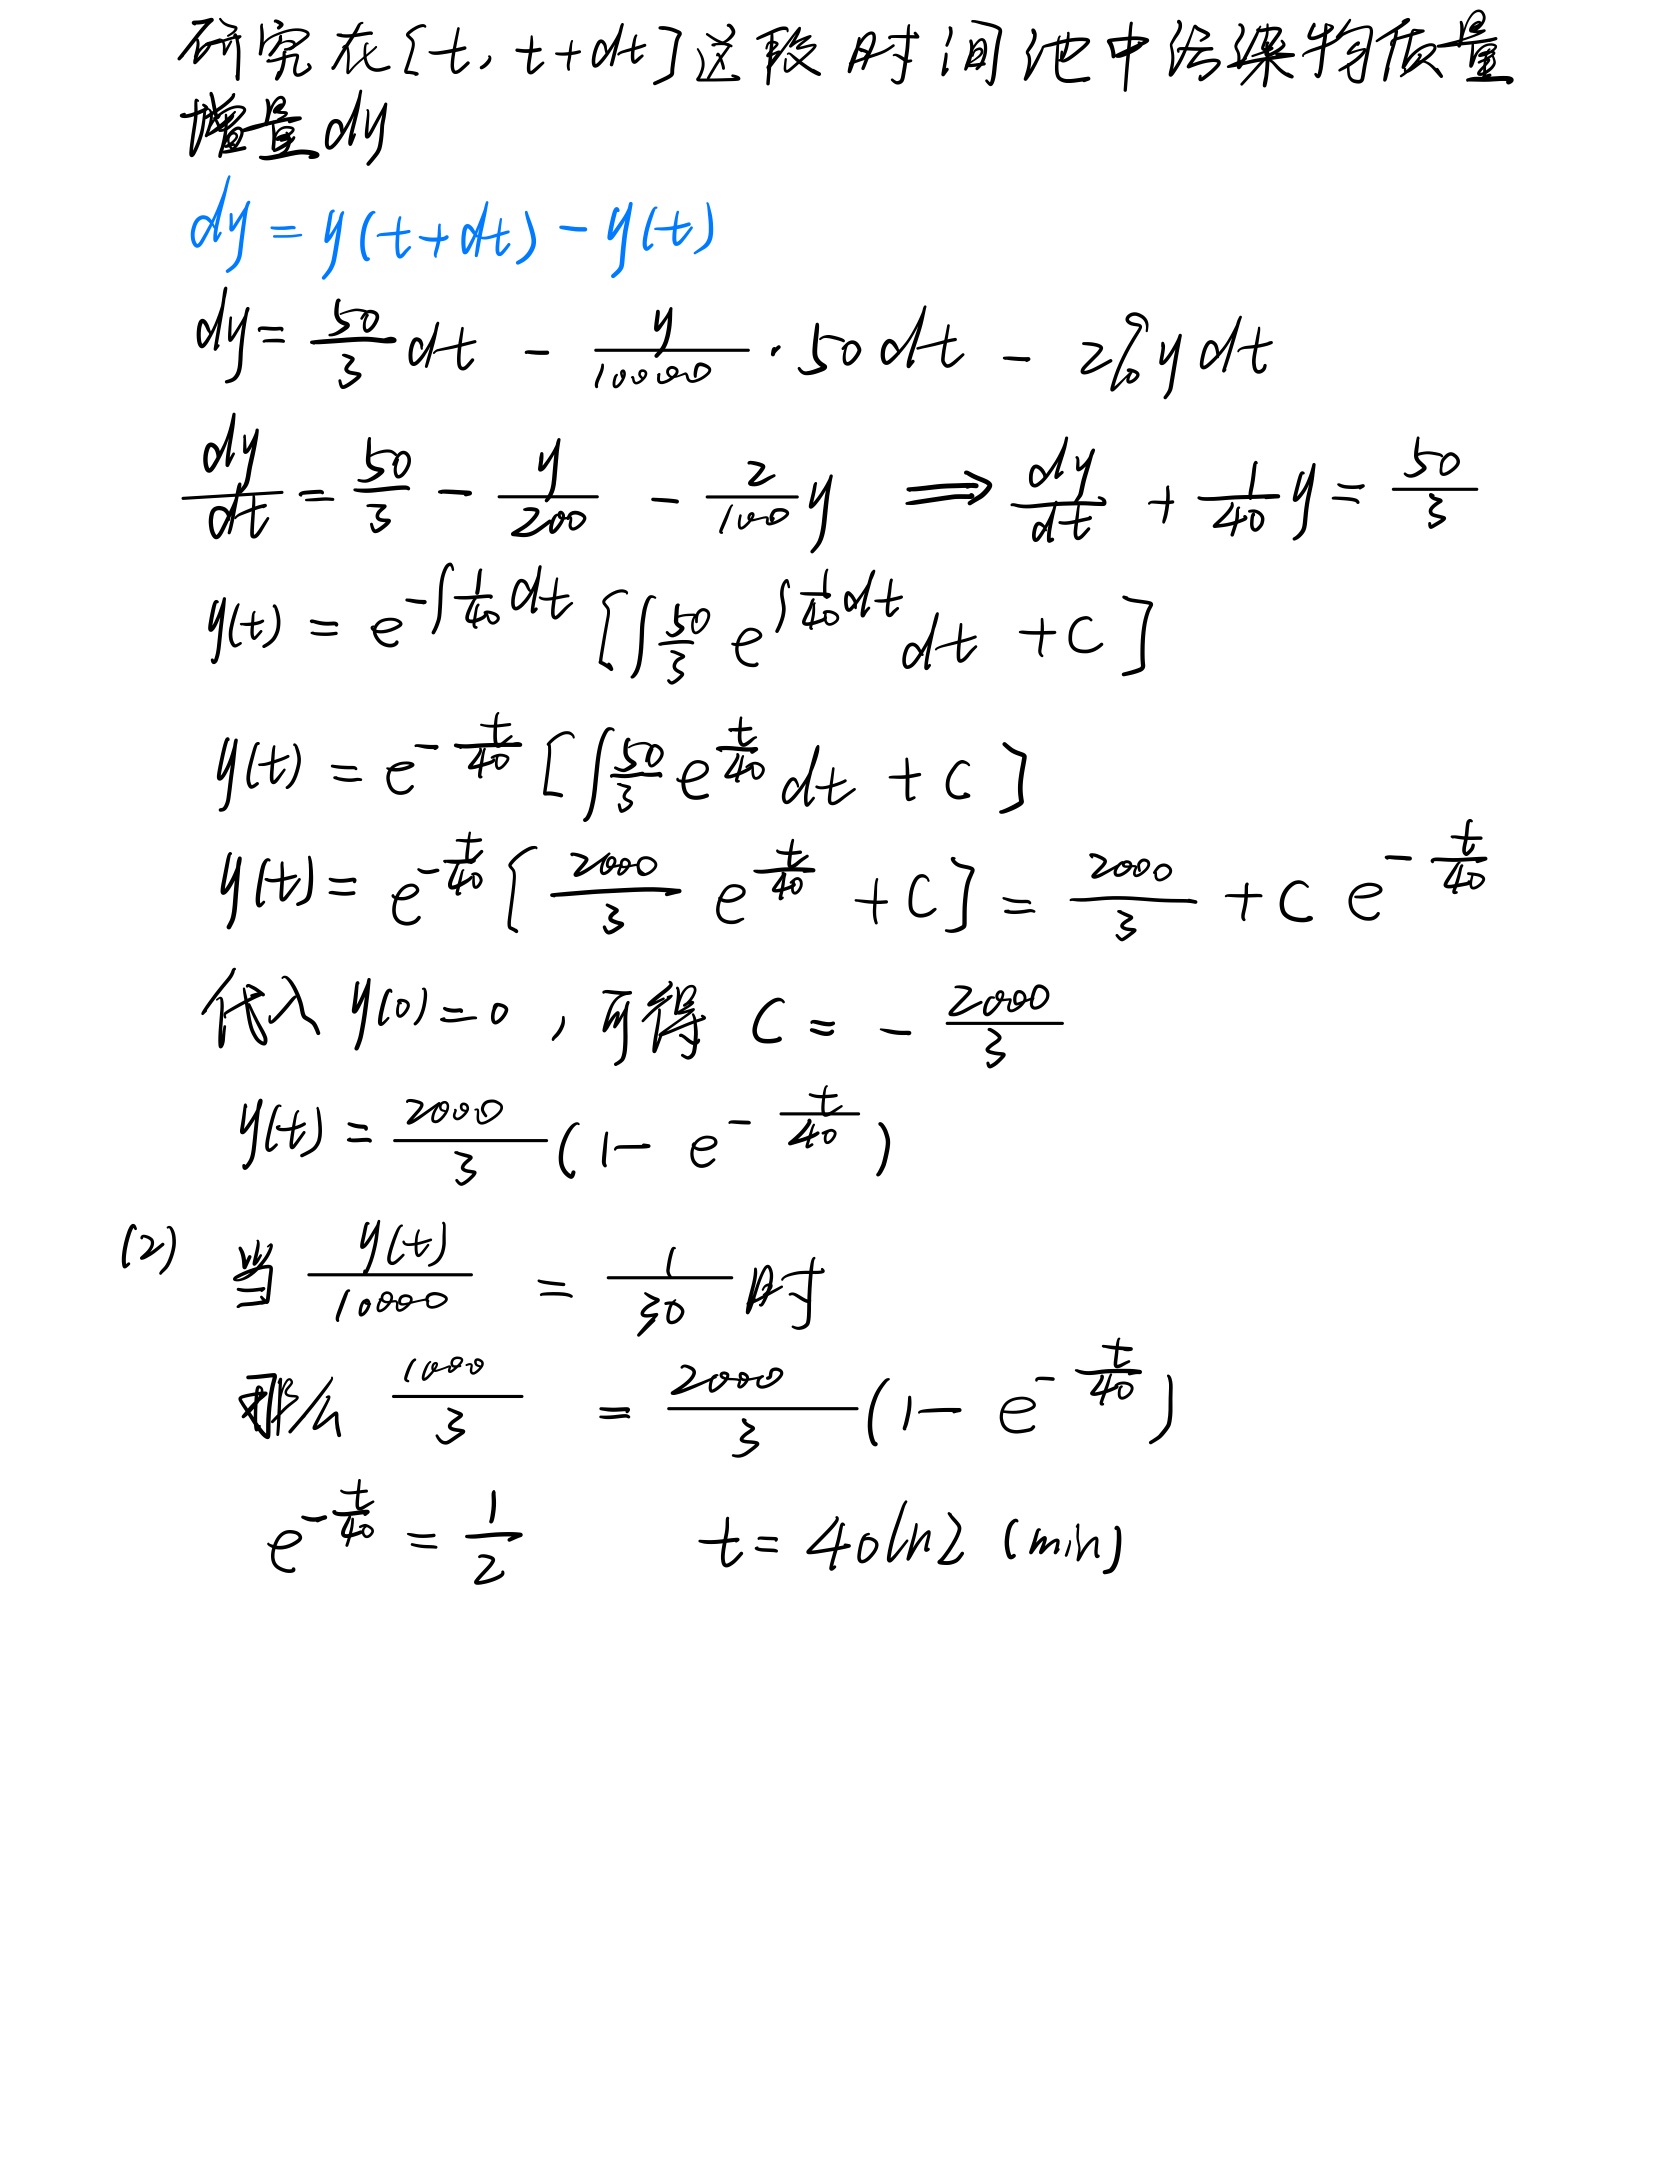 研究在[t, t+dt]这段时间池中污染物质量
增量dy
dy = y(t+dt) - y(t)
dy = \frac{50}{3} dt - \frac{y}{10000} · 50 dt - 2% y dt
\frac{dy}{dt} = \frac{50}{3} - \frac{y}{200} - \frac{2}{100} y ⟹ \frac{dy}{dt} + \frac{1}{40} y = \frac{50}{3}
y(t) = e^{-∫\frac{1}{40}dt} [∫\frac{50}{3} e^{∫\frac{1}{40}dt} dt + C]
y(t) = e^{-\frac{t}{40}} [∫\frac{50}{3} e^{\frac{t}{40}} dt + C]
y(t) = e^{-\frac{t}{40}} [\frac{2000}{3} e^{\frac{t}{40}} + C] = \frac{2000}{3} + C e^{-\frac{t}{40}}
代入 y(0) = 0 , 可得 C = - \frac{2000}{3}
y(t) = \frac{2000}{3} (1 - e^{-\frac{t}{40}})
(2) 当 \frac{y(t)}{10000} = \frac{1}{30} 时
那么 \frac{1000}{3} = \frac{2000}{3} (1 - e^{-\frac{t}{40}})
e^{-\frac{t}{40}} = \frac{1}{2} t = 40 ln2 (min)